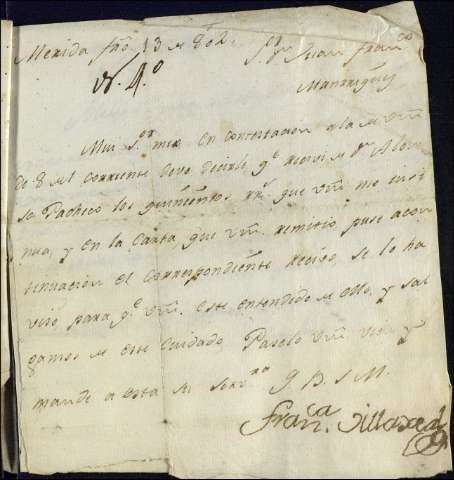 Merida
13 de 802
S.or Dn Juan Fran.co
N. 4.º
Manrriquez
Mui S.or mio En Contestacion a la de Vm
de 8 del Corriente devo decirle q.e recivi de Dn Alon
so Pacheco los quinientos r.s que Vm me
y En la Carta, que Vm. remitio puse acon
tinuacion el Correspondiente Recivo, se lo
viso para q.e Vm. Este entendido de ello, y sal
gamos de este Cuidado Paselo Vm. vien y
mande a esta su Serv.ra Q. B. S. M.
Fran.ca Villareal